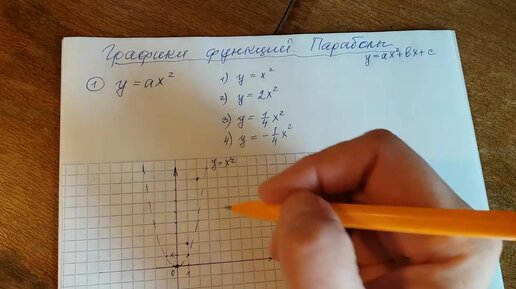 Графики функций Параболы
y=ax²+bx+c
① y=ax²
1) y=x²
2) y=2x²
3) y=¼x²
4) y=-¼x²
y=x²
1
0 1